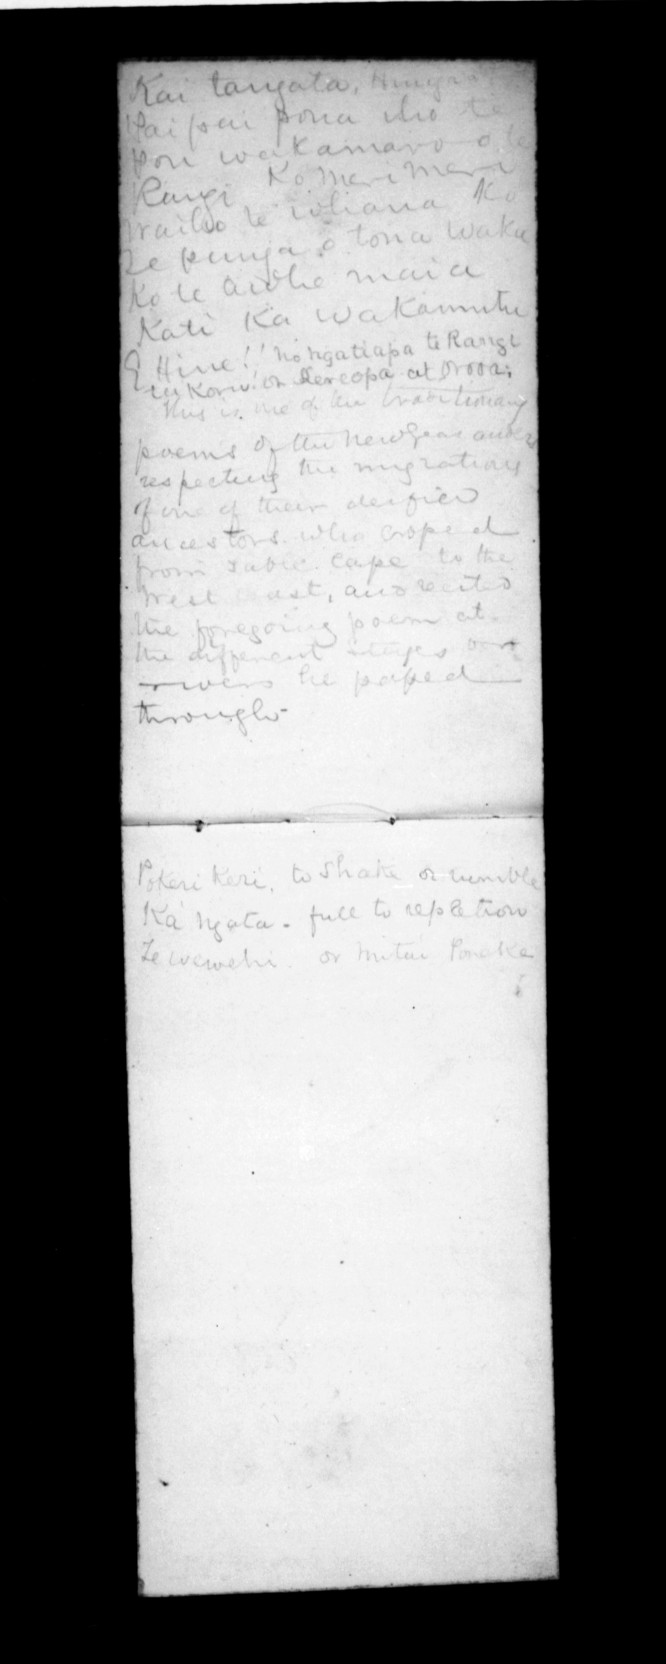 Kai tangata,
Paipai pona iho te
pou wakamaro o te
Rangi Ko meri meri
waiho te iohana Ko
Te punga o tona waka
Ko te awhe maia
Kati Ka wakamutu
E Hine!! No ngatiapa te Rangi
on Kereopa at Oroua;
This is one of the traditionary
poems of the New Zealanders
respecting the migrations
of one of their deified
ancestors who crossed
from Table Cape to the
West Coast, and recited
the foregoing poem at
the different stages
he passed
through

Pokeri Keri, to shake or rumble
Ka ngata - full to repletion
Te wewehi. or mitai Poneke